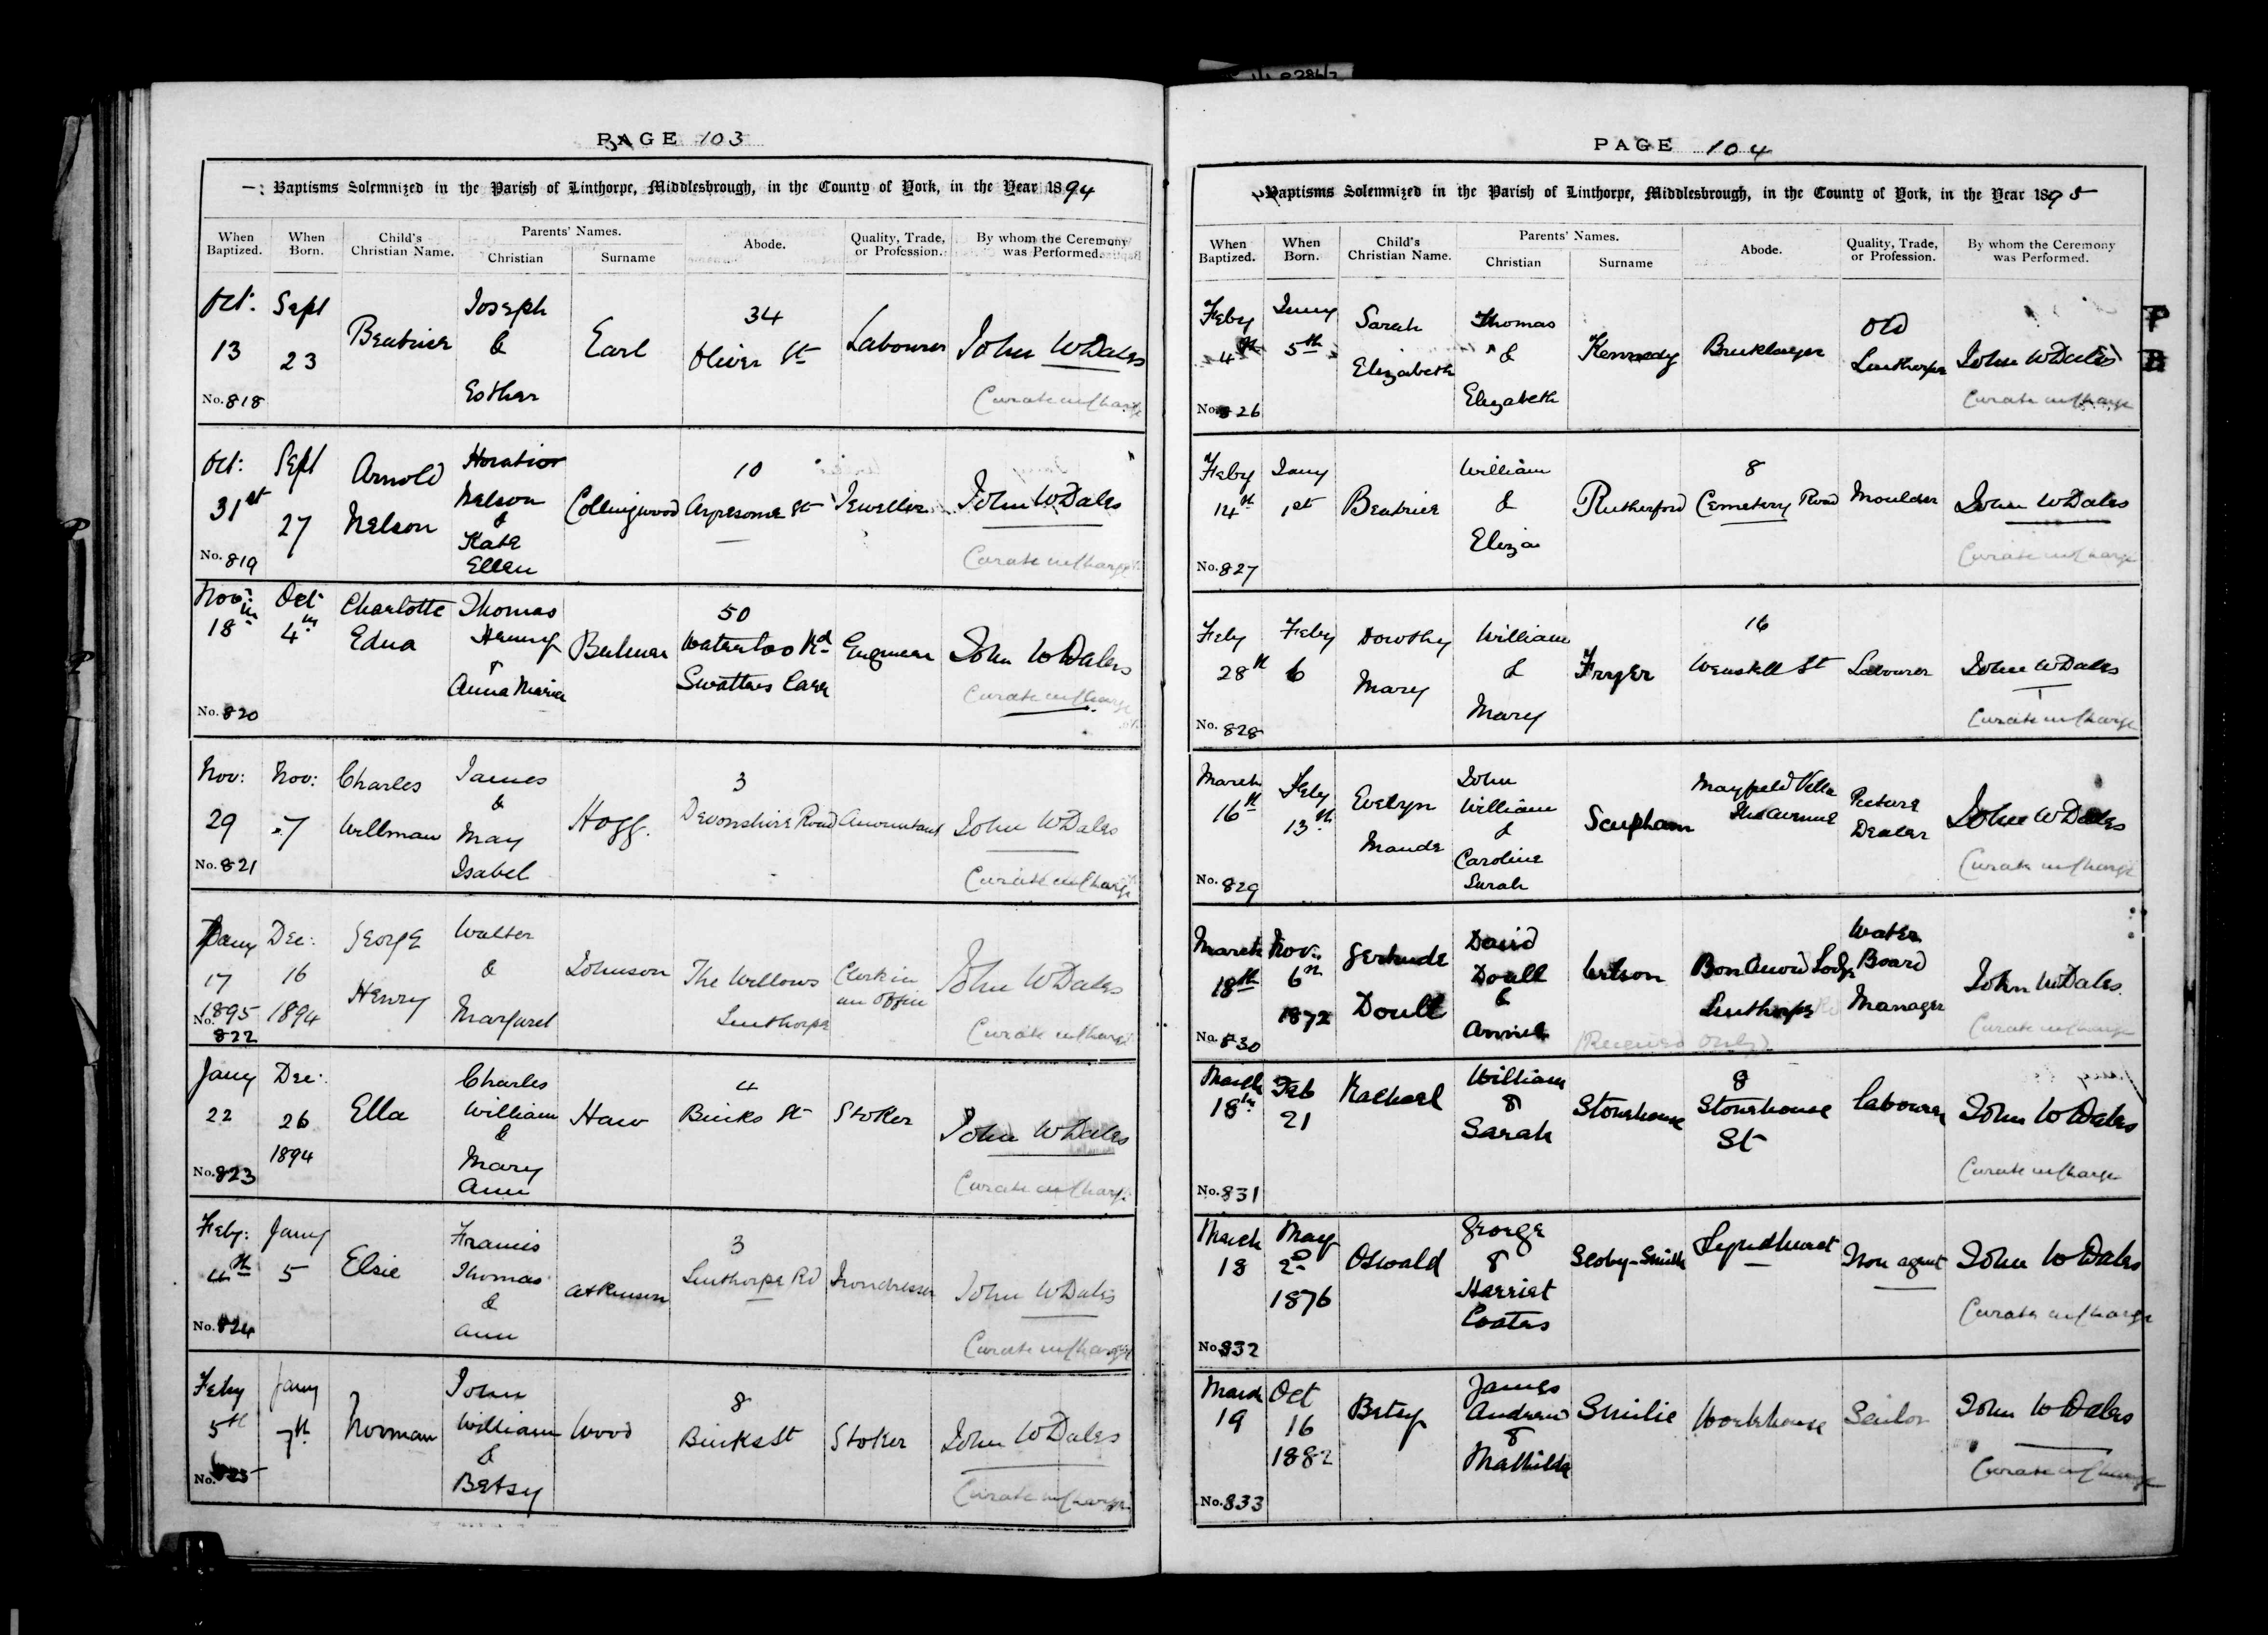 PAGE 103
Baptisms Solemnized in the Parish of Linthorpe, Middlesbrough, in the County of York, in the Year 1894
When Baptized. When Born. Child's Christian Name. Parents' Names. Christian Surname Abode. Quality, Trade, or Profession. By whom the Ceremony was Performed.
Oct: Sept Joseph
34
13 23 Beatrice & Earl Oliver St Labourer John W Dales
Esther
No. 818 Curate in Charge
Oct: Sept Arnold Horatio
10
31st 27 Nelson Nelson Collingwood Ayresome St Jeweller John W Dales
&
Kate
No. 819 Ellen Curate in Charge
Nov: Oct Charlotte Thomas 50
18th 4th Edna Henry Bulmer Waterloo Rd Engineer John W Dales
& Swatters Carr
Anna Maria Curate in Charge
No. 820
Nov: Nov: Charles James 3
&
29 7 Willman May Hogg. Devonshire Road Accountant John W Dales
No. 821 Isabel Curate in Charge
Jany Dec: George Walter
17 16 & Johnson The Willows Clerk in John W Dales
1895 1894 Henry Margaret Linthorpe an Office
No. 822 Curate in Charge
Jany Dec: Charles 4
22 26 Ella William Haw Binks St Stoker John W Dales
1894 &
Mary
No. 823 Ann Curate in Charge
Feby: Jany Francis 3
4th 5 Elsie Thomas Atkinson Linthorpe Rd Irondresser John W Dales
&
No. 824 Ann Curate in Charge
Feby Jany John 8
5th 7th Norman William Wood Binks St Stoker John W Dales
&
No. 825 Betsy Curate in Charge
PAGE 104
Baptisms Solemnized in the Parish of Linthorpe, Middlesbrough, in the County of York, in the Year 1895
When Baptized. When Born. Child's Christian Name. Parents' Names. Christian Surname Abode. Quality, Trade, or Profession. By whom the Ceremony was Performed.
Feby Jany Sarah Thomas Old
4th 5th Elizabeth & Kennedy Bricklayer Linthorpe John W Dales
No. 826 Elizabeth Curate in Charge
Feby Jany William 8
14th 1st Beatrice & Rutherford Cemetery Road Moulder John W Dales
Eliza
No. 827 Curate in Charge
Feby Feby Dorothy William 16
28th 6 Mary & Fryer St Labourer John W Dales
Mary
No. 828 Curate in Charge
March Feby John Mayfield Villa Picture
16th 13th Evelyn William Scupham The Avenue Dealer John W Dales
& 
Maude Caroline
No. 829 Sarah Curate in Charge
March Nov: Gertrude David Water
18th 6th Doull Wilson Bon Accord Lodge Board John W Dales
1872 Doull & Linthorpe Manager
No. 830 Annie (Received Only) Curate in Charge
March Feb William 8
18th 21 Rachael & Stonehouse Stonehouse Labourer John W Dales
Sarah St
No. 831 Curate in Charge
March May George
18 2nd Oswald & Lyndhurst Iron agent John W Dales
1876 Harriet
Coates
No. 832 Curate in Charge
March Oct James
19 16 Betsy Andrew Smilie Workhouse Sailor John W Dales
1882 &
Mathilda
No. 833 Curate in Charge